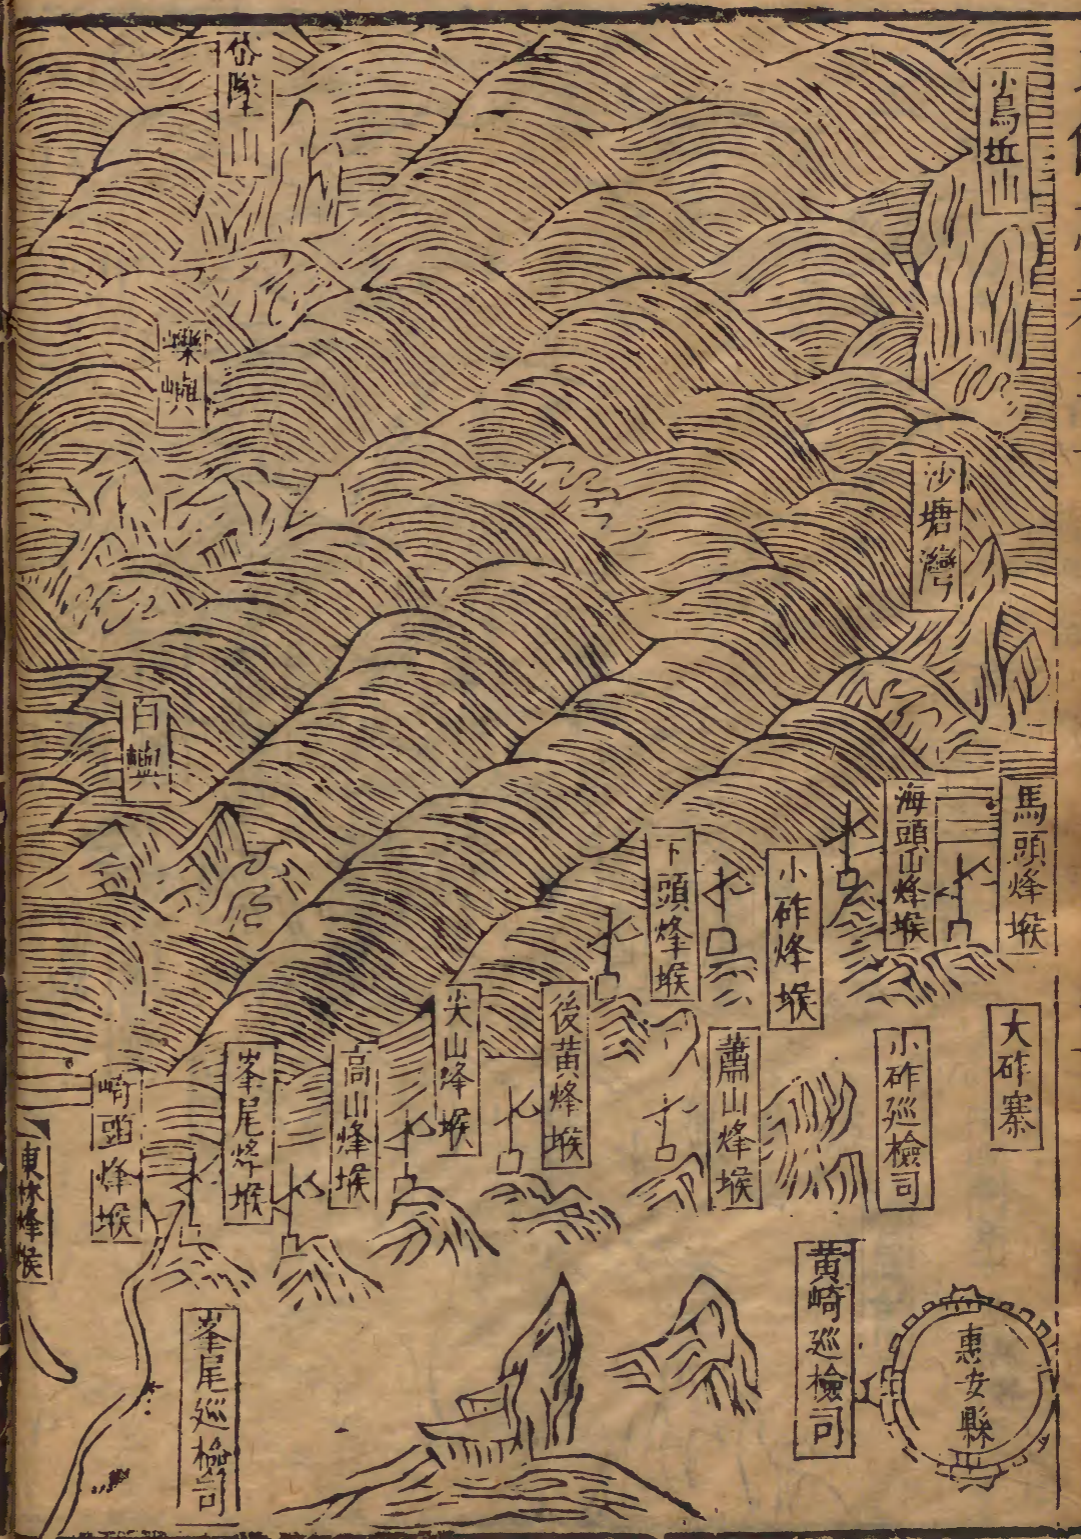 小烏坵山
沙塘灣
馬頭烽堠
海頭山烽堠
小砟烽堠
下頭烽堠
大砟寨
小砟廵檢司
蕭山烽堠
後黄烽堠
尖山烽堠
高山烽堠
峯尾烽堠
崎頭烽堠
惠安縣
黄崎廵檢司
峯尾廵檢司
山
嶼
白嶼
烽堠